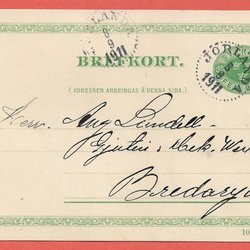 BREFKORT.
(ADRESSEN ANBRINGAS Å DENNA SIDA.)
JÖRLANDA
8
9
1911
Herr
Aug Lundell
Gjuteri & Mek. Verk
Bredaryd
10